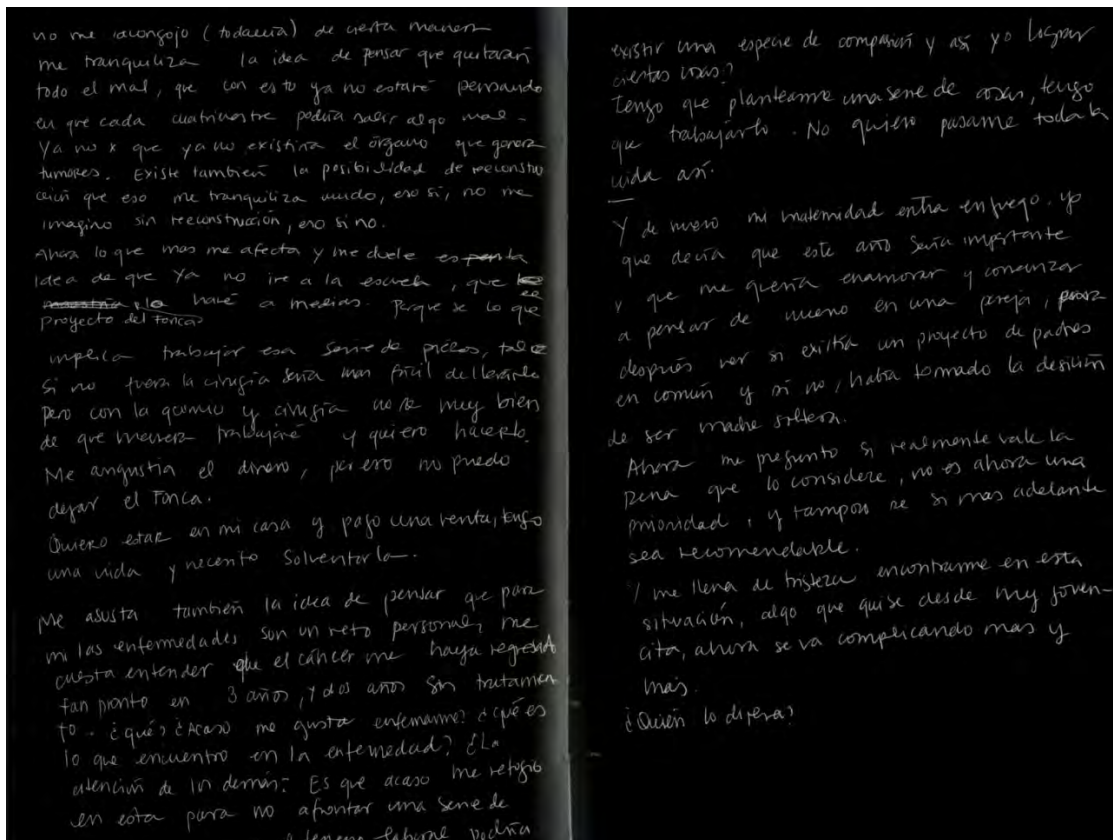 no me acongojo (todavía) de cierta manera
me tranquiliza la idea de pensar que quitarán
todo el mal, que con esto ya no estaré pensando
en que cada cuatrimestre podría salir algo mal.
Ya no x que ya no existirá el órgano que genera
tumores. Existe también la posibilidad de reconstru
cción que eso me tranquiliza mucho, eso si, no me
imagino sin reconstrucción, eso si no.
Ahora lo que mas me afecta y me duele es
idea de que ya no ire a la escuela, que
haré a medias. Porque se lo que
proyecto del Fonca
implica trabajar esa serie de piezas, tal vez
si no fuera la cirugía sería mas fácil de llevarlo
pero con la quimio y cirugía no se muy bien
de que manera trabajaré y quiero hacerlo.
Me angustia el dinero, por eso no puedo
dejar el Fonca.
Quiero estar en mi casa y pago una renta, tengo
una vida y necesito solventarla.
Me asusta también la idea de pensar que para
mi las enfermedades son un reto personal, me
cuesta entender que el cáncer me haya regresado
tan pronto en 3 años, y dos años sin tratamien
to. ¿qué? ¿Acaso me gusta enfermarme? ¿qué es
lo que encuentro en la enfermedad? ¿La
atención de los demás? Es que acaso me refugio
en esta para no afrontar una serie de
laboral podría
existir una especie de compasión y así yo lograr
ciertas cosas?
Tengo que plantearme una serie de cosas, tengo
que trabajarlo. No quiero pasarme toda la
vida así.
Y de nuevo mi maternidad entra en juego. yo
que decía que este año sería importante
y que me quería enamorar y comenzar
a pensar de nuevo en una pareja, para
después ver si existía un proyecto de padres
en común y si no, había tomado la desición
de ser madre soltera.
Ahora me pregunto si realmente vale la
pena que lo considere, no es ahora una
prioridad, y tampoco se si mas adelante
sea recomendable.
Y me llena de tristeza encontrarme en esta
situación, algo que quise desde muy joven-
cita, ahora se va complicando mas y
más.
¿Quién lo dijera?